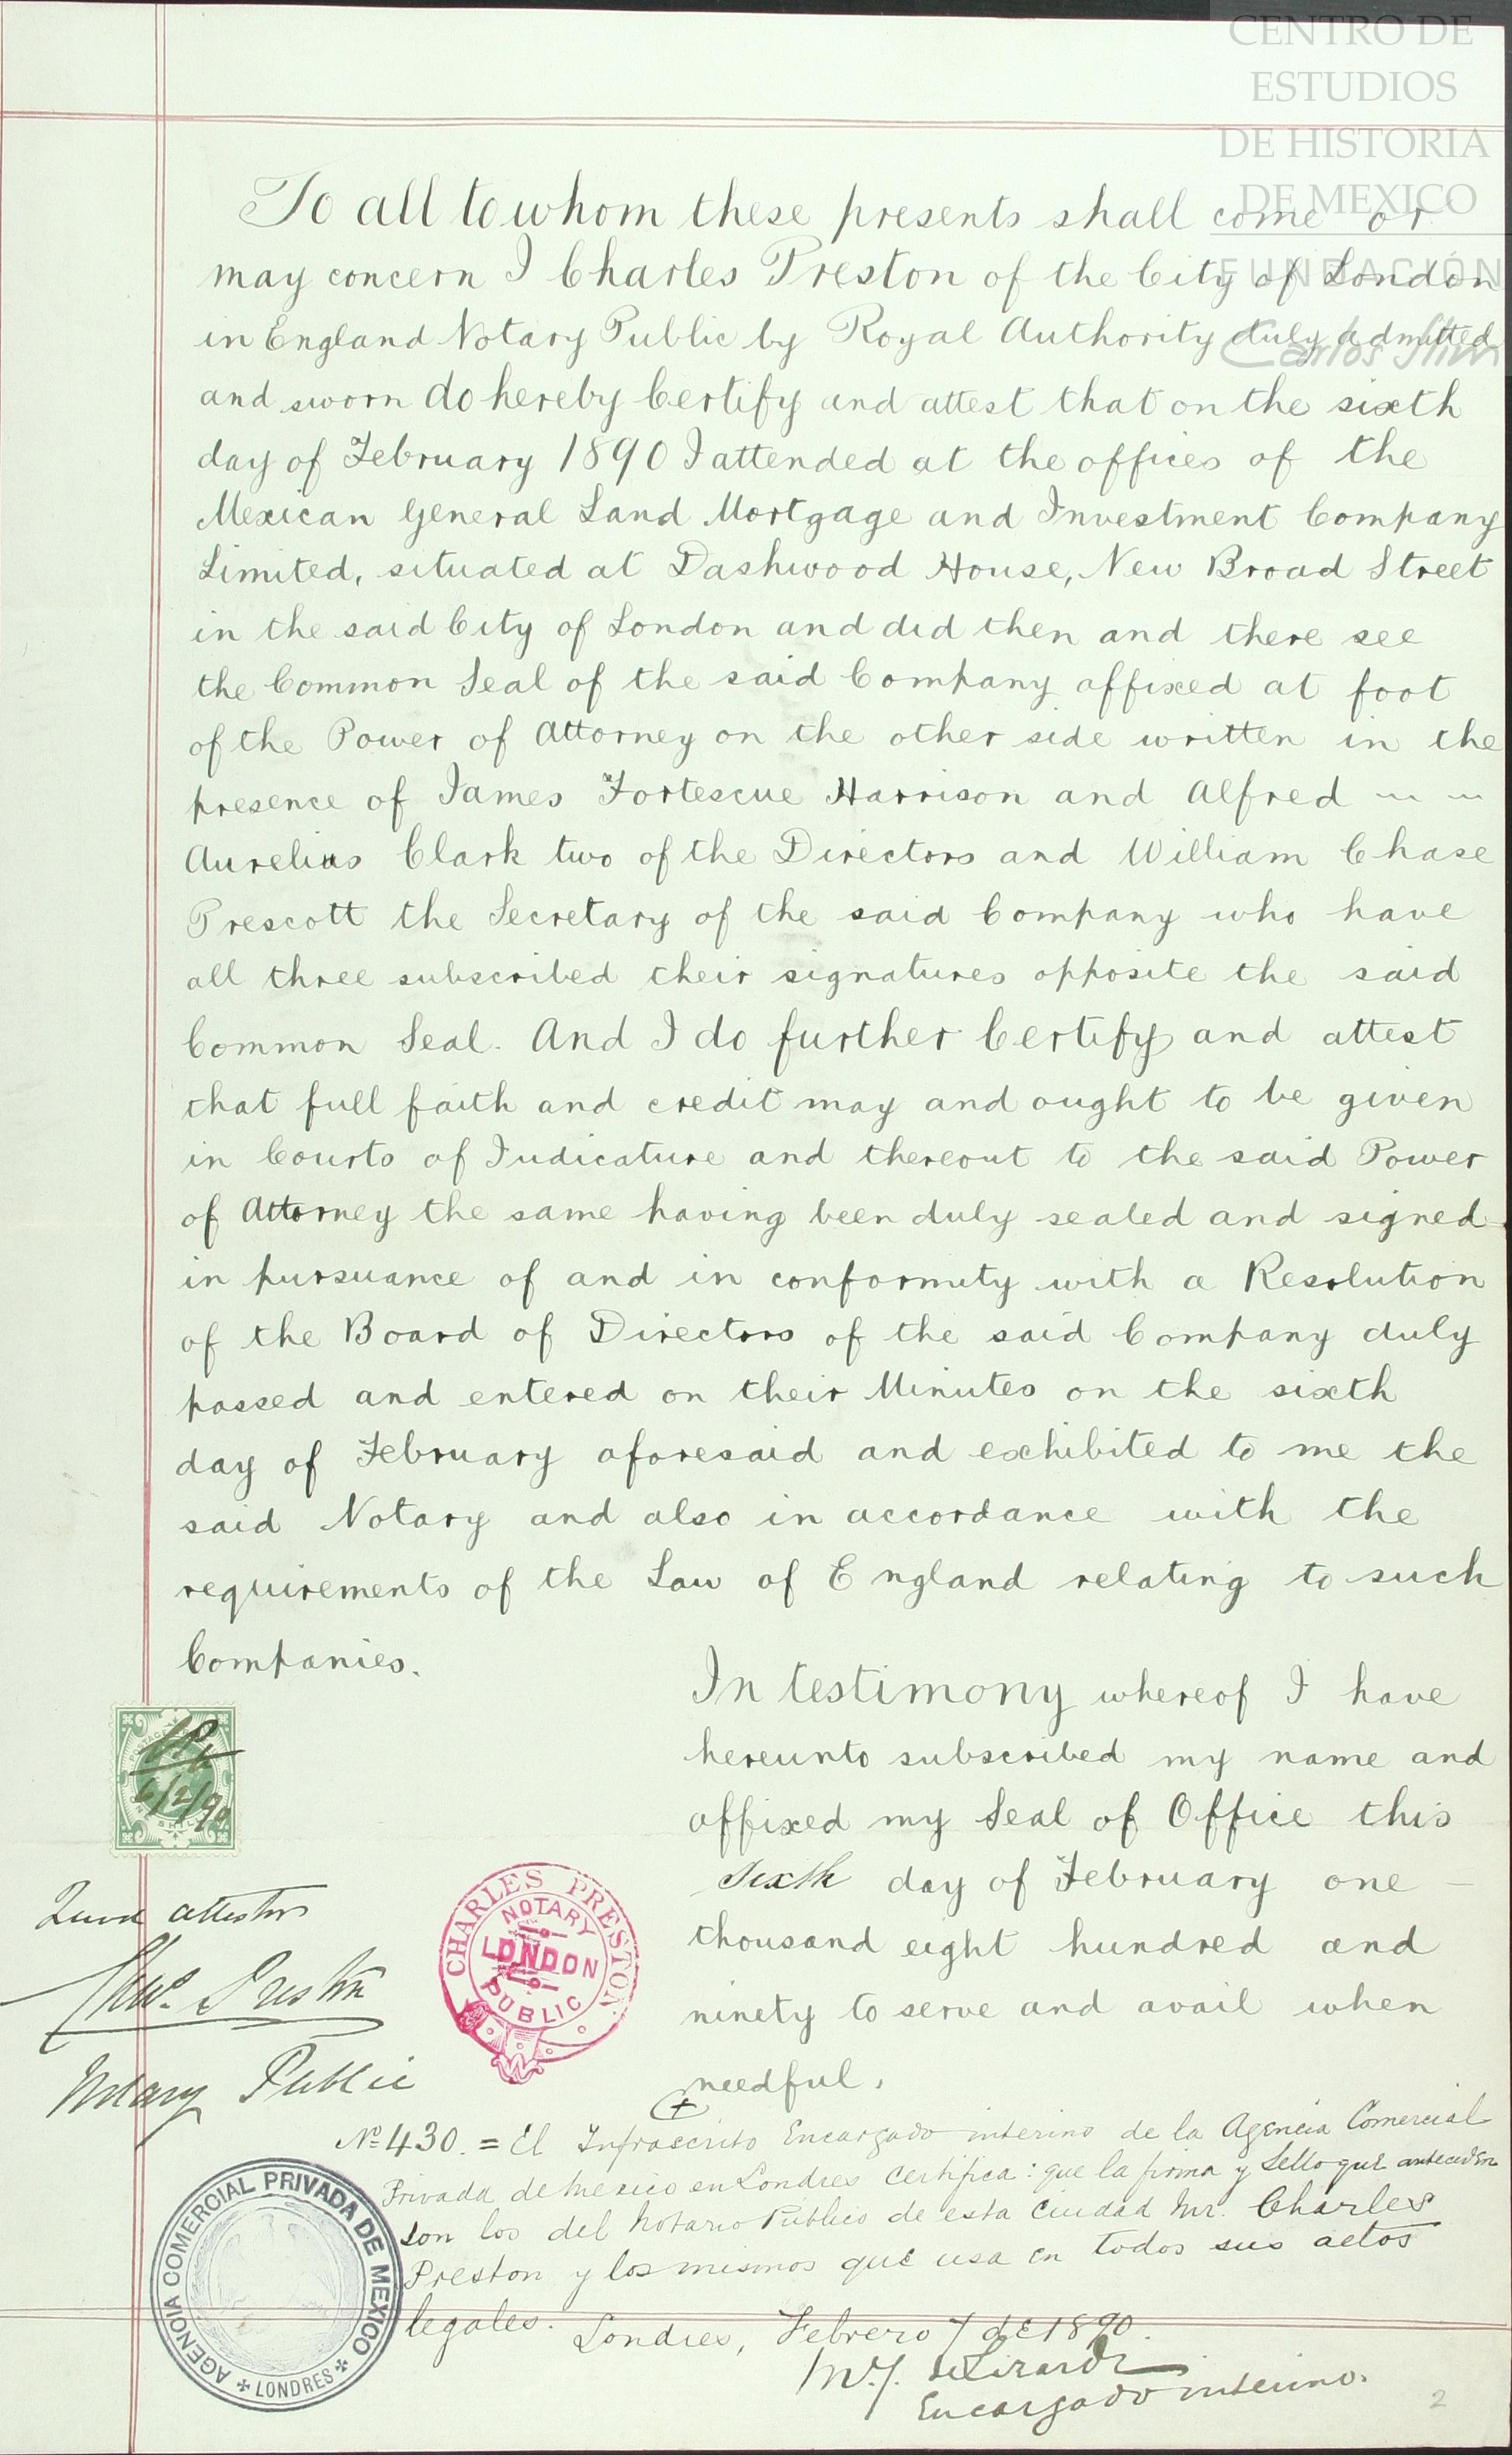 CENTRO DE
ESTUDIOS
DE HISTORIA
DE MEXICO
FUNDACIÓN
Carlos Slim
To all to whom these presents shall come or
may concern I Charles Preston of the City of London
in England Notary Public by Royal Authority duly admitted
and sworn do hereby Certify and attest that on the sixth
day of February 1890 I attended at the offices of the
Mexican General Land Mortgage and Investment Company
Limited, situated at Dashwood House, New Broad Street
in the said City of London and did then and there see
the Common Seal of the said Company affixed at foot
of the Power of Attorney on the other side written in the
presence of James Fortescue Harrison and Alfred ~ ~
Aurelius Clark two of the Directors and William Chase
Prescott the Secretary of the said Company who have
all three subscribed their signatures opposite the said
Common Seal. And I do further Certify and attest
that full faith and credit may and ought to be given
in Courts of Judicature and thereout to the said Power
of Attorney the same having been duly sealed and signed
in pursuance of and in conformity with a Resolution
of the Board of Directors of the said Company duly
passed and entered on their Minutes on the sixth
day of February aforesaid and exhibited to me the
said Notary and also in accordance with the
requirements of the Law of England relating to such
Companies.
In testimony whereof I have
hereunto subscribed my name and
affixed my Seal of Office this
Sixth day of February one –
thousand eight hundred and
ninety to serve and avail when
needful.
6/2/90
Quod attestor
Chas. Preston
Notary Public
CHARLES PRESTON
NOTARY
LONDON
PUBLIC
Nº 430. = El Infrascrito Encargado interino de la Agencia Comercial
Privada de Mexico en Londres Certifica: que la firma y Sello que anteceden
son los del Notario Publico de esta Ciudad Mr. Charles
Preston y los mismos que usa en todos sus actos
legales. Londres, Febrero 7 de 1890.
Encargado interino.
AGENCIA COMERCIAL PRIVADA DE MEXICO
LONDRES
2